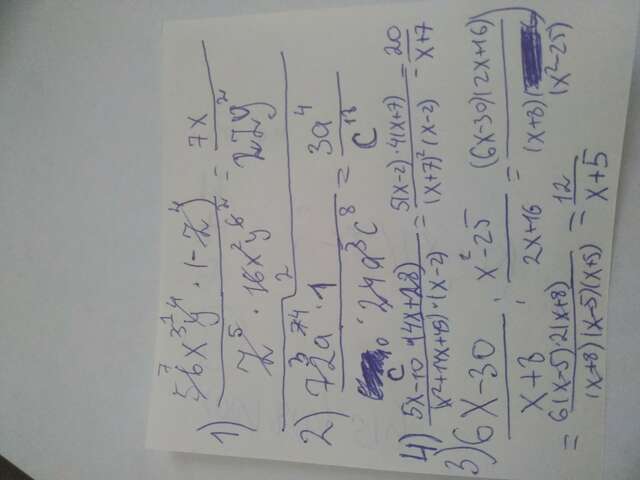 1) 56x³y⁴ · (-z⁴) / z⁵ · 16x²y⁶ = 7x / 2zy²
2) 72a⁷ · 1 / c¹⁰ · 24a³c⁸ = 3a⁴ / c¹⁸
4) 5x-10 · (4x+28) / x²+14x+49 · (x-2) = 5(x-2)·4(x+7) / (x+7)²(x-2) = 20 / x+7
3) 6x-30 / x+8 : x²-25 / 2x+16 = (6x-30)(2x+16) / (x+8)(x²-25)
= 6(x-5)2(x+8) / (x+8)(x-5)(x+5) = 12 / x+5